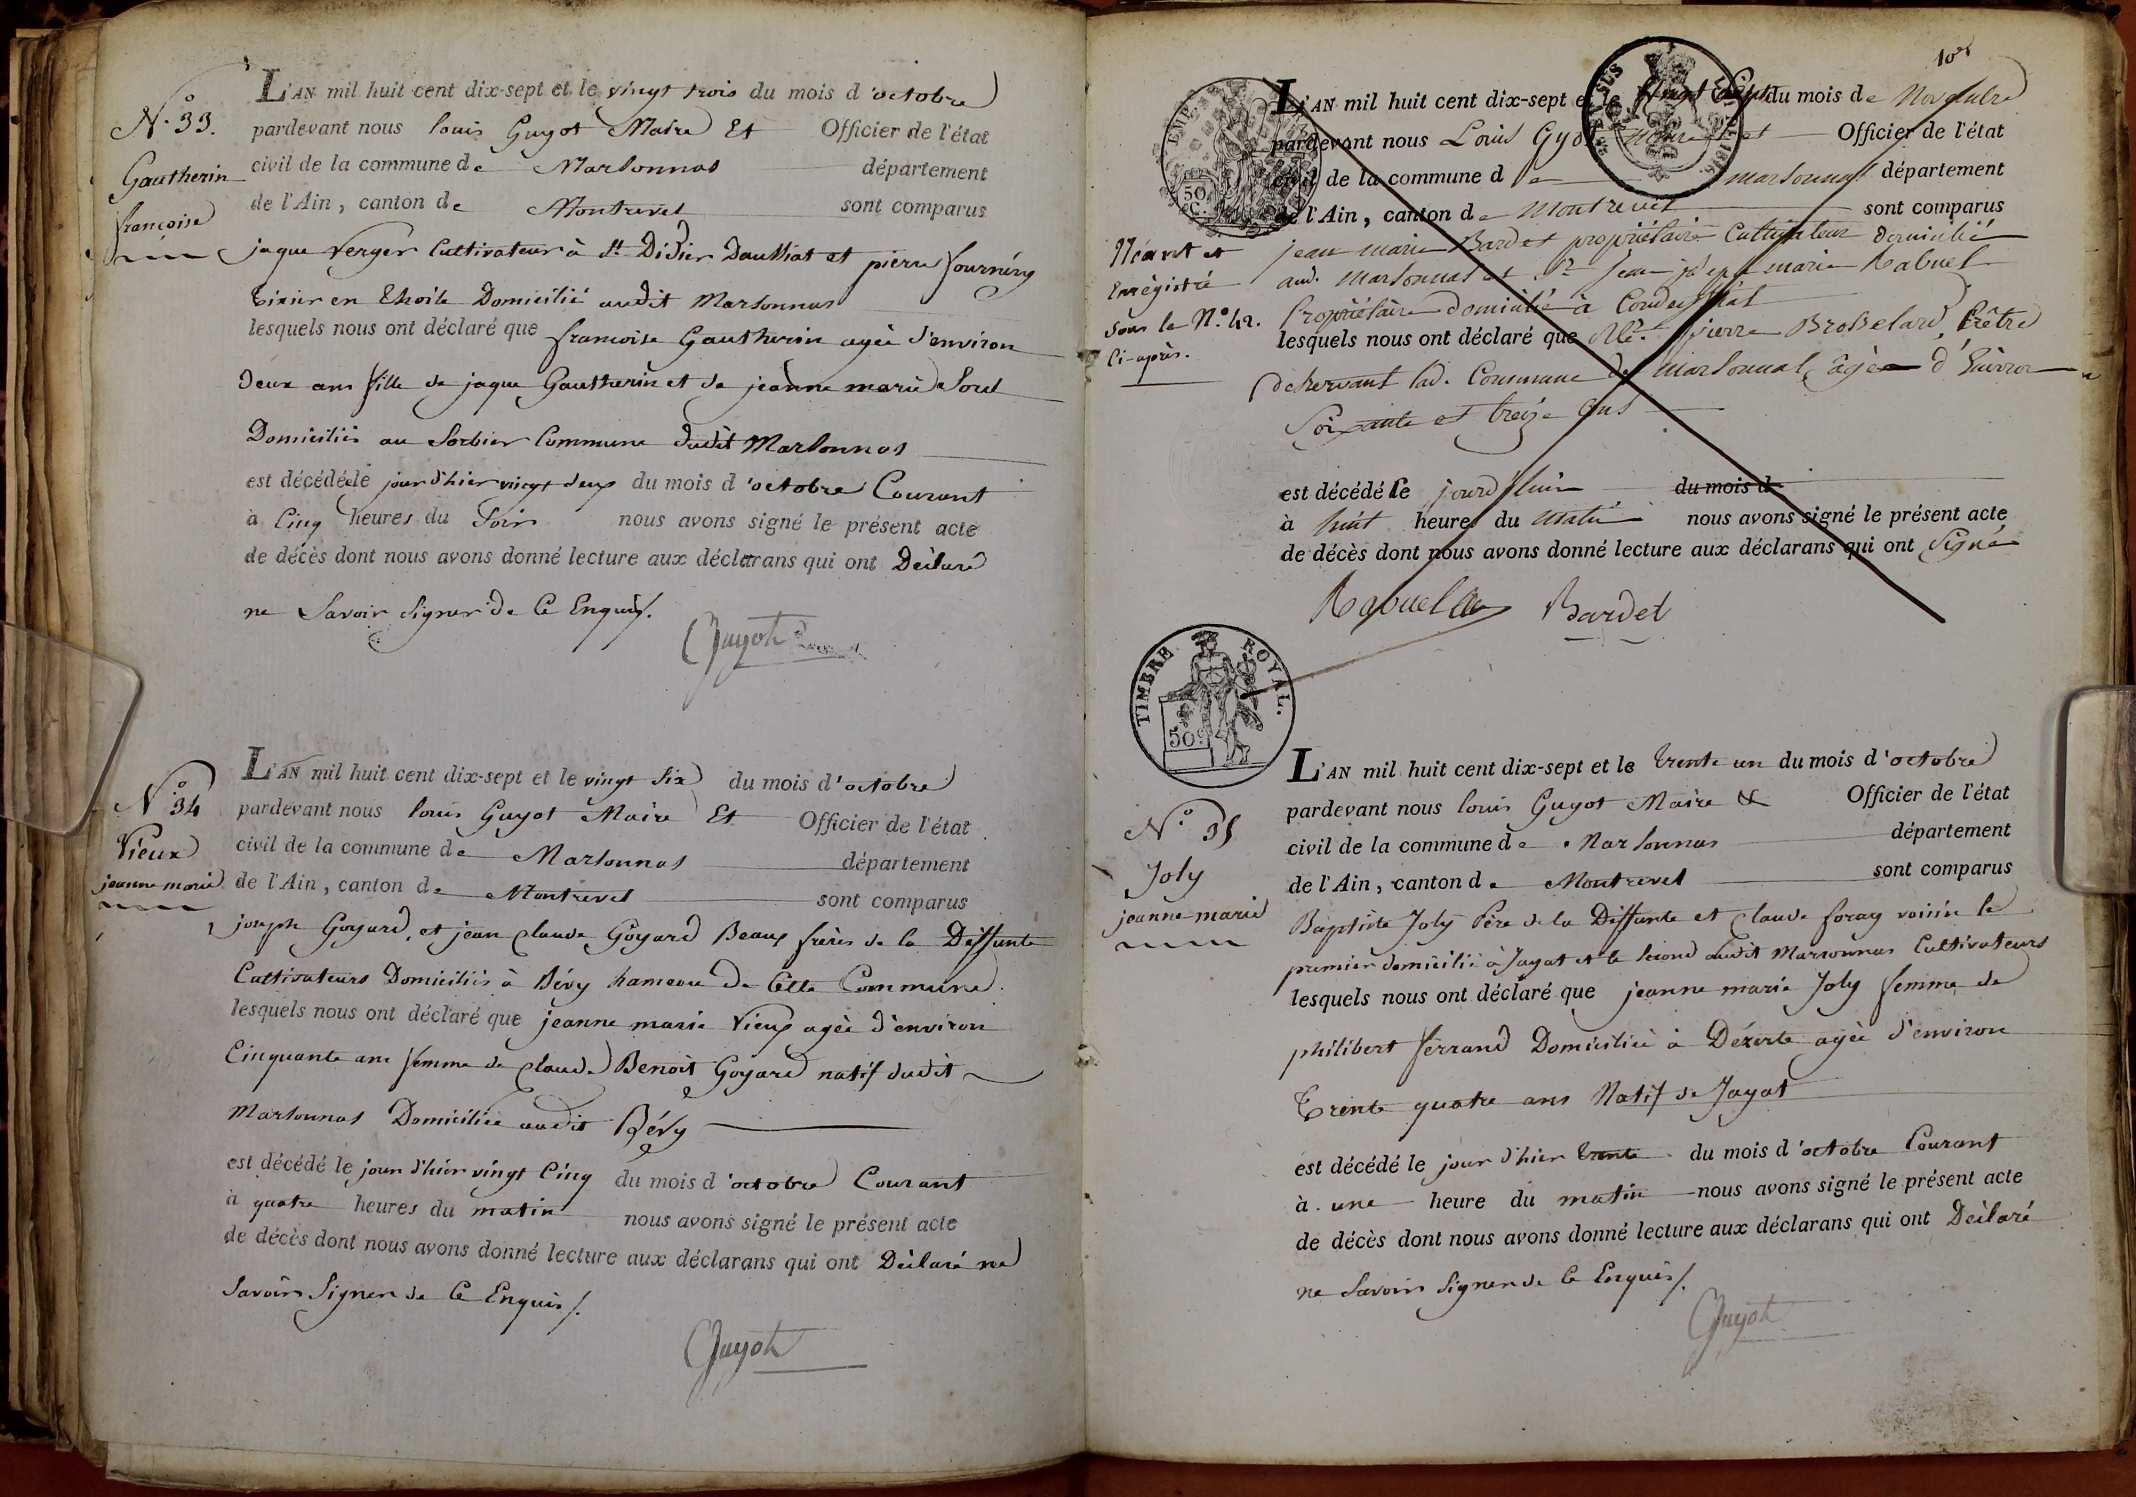 N.° 33.
Gautherin
françoise
L'AN mil huit cent dix-sept et le vingt trois du mois d'octobre
pardevant nous louis Guyot Maire Et Officier de l'état
civil de la commune de Marsonnas département
de l'Ain, canton de Montrevel sont comparus
jaque Verger Cultivateur à St. Didier Daussiat et pierre fournéry
tixier en thoile Domicilié audit Marsonnas
lesquels nous ont déclaré que francoise Gautherin agée d'environ
deux ans fille de jaque Gautherin et de jeanne marie
Domiciliés au Sorbier Commune dudit Marsonnas
est décédée le jour d'hier vingt deux du mois d'octobre Courant
à Cinq heures du Soir nous avons signé le présent acte
de décès dont nous avons donné lecture aux déclarans qui ont Déclaré
ne Savoir Signer de Ce Enquis/.
Guyot
N.° 34
Vieux
jeanne marie
L'AN mil huit cent dix-sept et le vingt Six du mois d'octobre
pardevant nous louis Guyot Maire Et Officier de l'état
civil de la commune de Marsonnas département
de l'Ain, canton de Montrevel sont comparus
joseph Goyard, et jean Claude Goyard Beaux frères de la Deffunte
Cultivateurs Domiciliés à Bévy hameau de Cette Commune
lesquels nous ont déclaré que jeanne marie Vieux agée d'environ
Cinquante ans femme de Claude Benoit Goyard natif dudit
Marsonnas Domiciliée audit Bévy
est décédé le jour d'hier vingt Cinq du mois d'octobre Courant
à quatre heures du matin nous avons signé le présent acte
de décès dont nous avons donné lecture aux déclarans qui ont Déclaré ne
Savoir Signer de Ce Enquis/.
Guyot
Néant et
Enrégistré
sous le N.° 42.
Ci-après.
L'AN mil huit cent dix-sept et le Vingt Sept du mois de Novembre
pardevant nous Louis Gyot Maire et Officier de l'état
civil de la commune de marsonnas département
de l'Ain, canton de Montrevel sont comparus
jean marie Bardet propriétaire Cultivateur domicilié
aud. Marsonnas et Sr. Jean joseph marie Rabuel
Propriétaire domicilié à
lesquels nous ont déclaré que Mr. pierre Brosselard, Prêtre
déservant lad. Commune de Marsonnas, agé d'Environ
Soixante et treize ans
est décédé le jourd'hui du mois d
à huit heures du matin nous avons signé le présent acte
de décès dont nous avons donné lecture aux déclarans qui ont Signé
Rabuel Bardet
TIMBRE ROYAL.
50c
N.° 35
Joly
jeanne-marie
L'AN mil huit cent dix-sept et le trente un du mois d'octobre
pardevant nous louis Guyot Maire & Officier de l'état
civil de la commune de Marsonnas département
de l'Ain, canton de Montrevel sont comparus
Baptiste Joly Père de la Deffunte et Claude foray voisin le
premier domicilié à Jayat et le second audit Marsonnas Cultivateurs
lesquels nous ont déclaré que jeanne marie Joly femme de
philibert ferrand Domiciliée à Dézerte agée d'environ
Trente quatre ans Natif de Jayat
est décédé le jour d'hier trente du mois d'octobre Courant
à une heure du matin nous avons signé le présent acte
de décès dont nous avons donné lecture aux déclarans qui ont Déclaré
ne Savoir Signer de Ce Enquis/.
Guyot